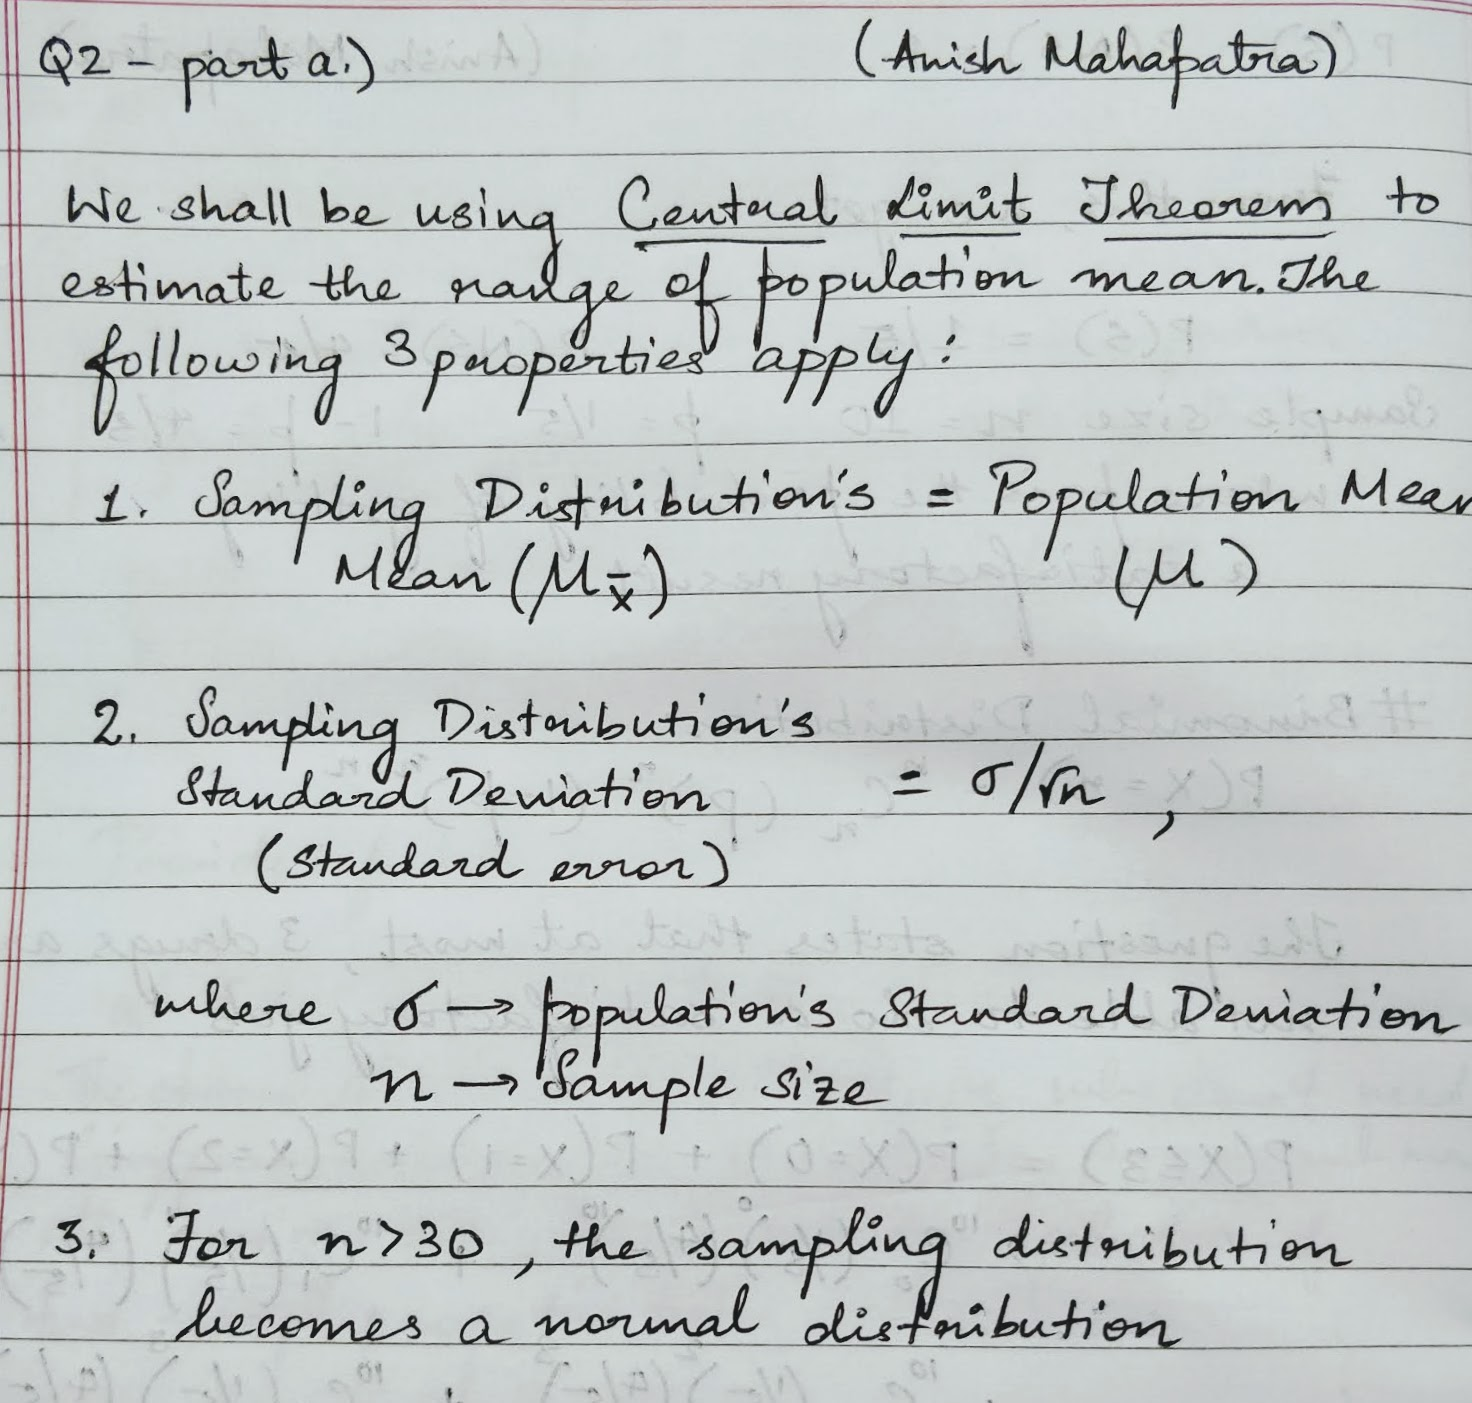 Q2 - part a.) (Anish Mahapatra)
We shall be using Central Limit Theorem to
estimate the range of population mean. The
following 3 properties apply:
1. Sampling Distribution's = Population Mean
Mean (μx̄) (μ)
2. Sampling Distribution's
Standard Deviation = σ/√n ,
(Standard error)
where σ → population's Standard Deviation
n → Sample size
3. For n>30, the sampling distribution
becomes a normal distribution